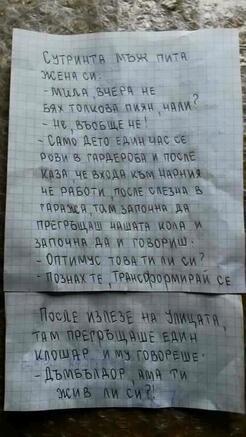 Сутринта мъж пита
жена си:
- Мила, вчера не
бях толкова пиян, нали?
- Не, въобще не!
- Само дето един час се
рови в гардероба и после
каза че входа към Нарния
не работи, после слезна в
гаража, там започна да
прегръщаш нашата кола и
започна да и говориш.
- Оптимус това ти ли си?
- Познах те, трансформирай се
После излезе на улицата,
там прегръщаше един
клошар и му говореше.
- Дъмбълдор, ама ти
жив ли си?!